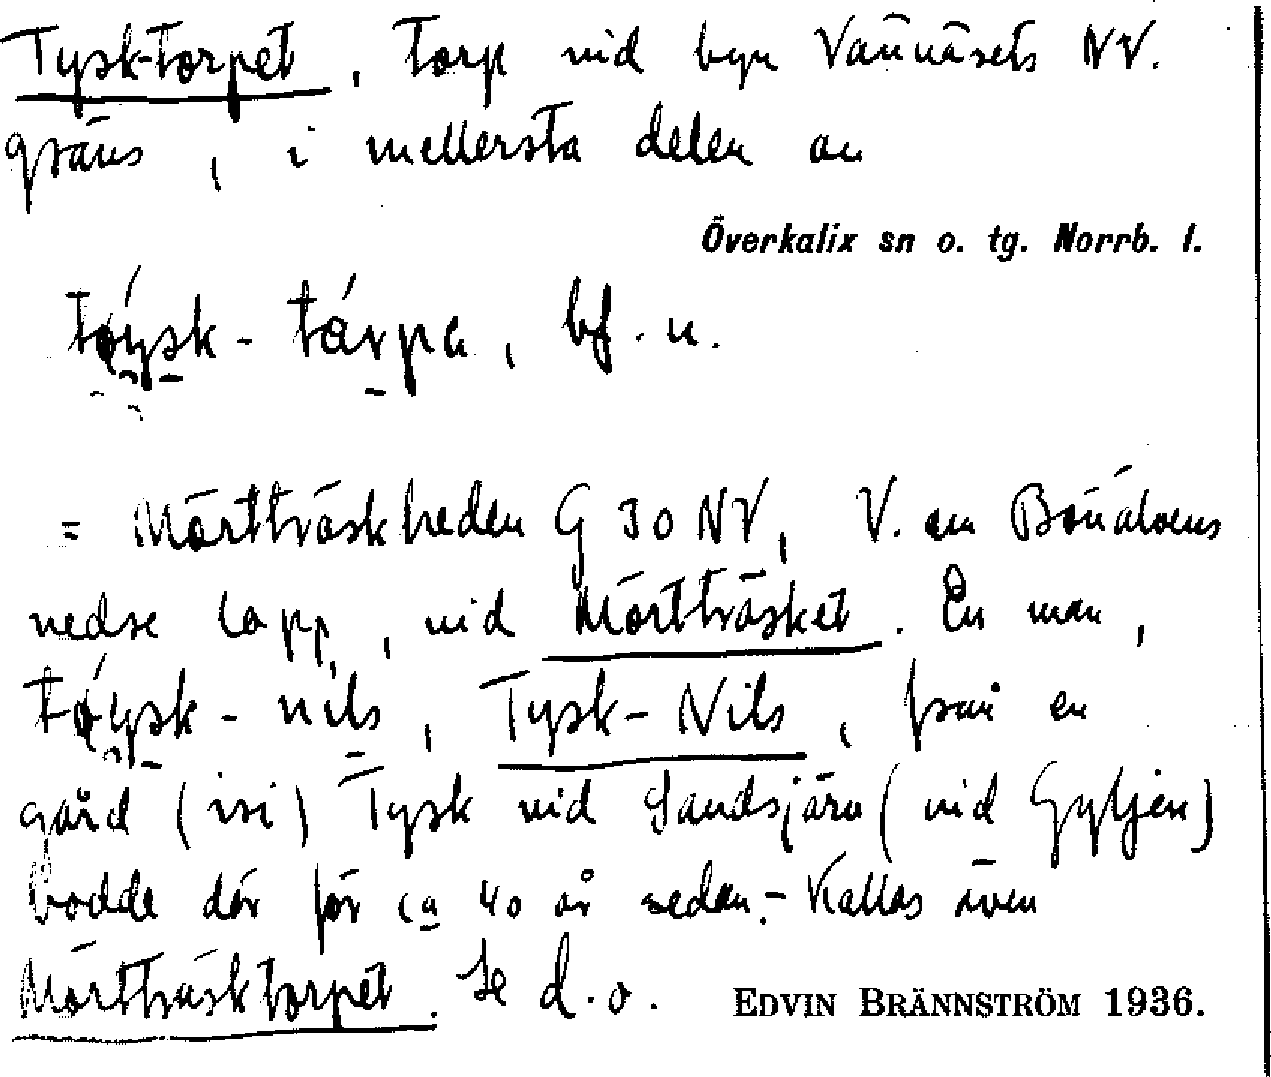 Tysk-torpet, torp vid byn Vännäsets NV.
gräns, i mellersta delen av
Överkalix sn o. tg. Norrb. l.
bf. n.
= Mörtträskheden G 30 NV, V. om Bönälvens
nedre lopp, vid Mörtträsket. En man,
nils, Tysk-Nils, från en
gård (isi) Tysk vid Sandsjärv (vid Gyljen)
bodde där för ca 40 år sedan. - Kallas även
Mörtträsktorpet. Se d. o. EDVIN BRÄNNSTRÖM 1936.